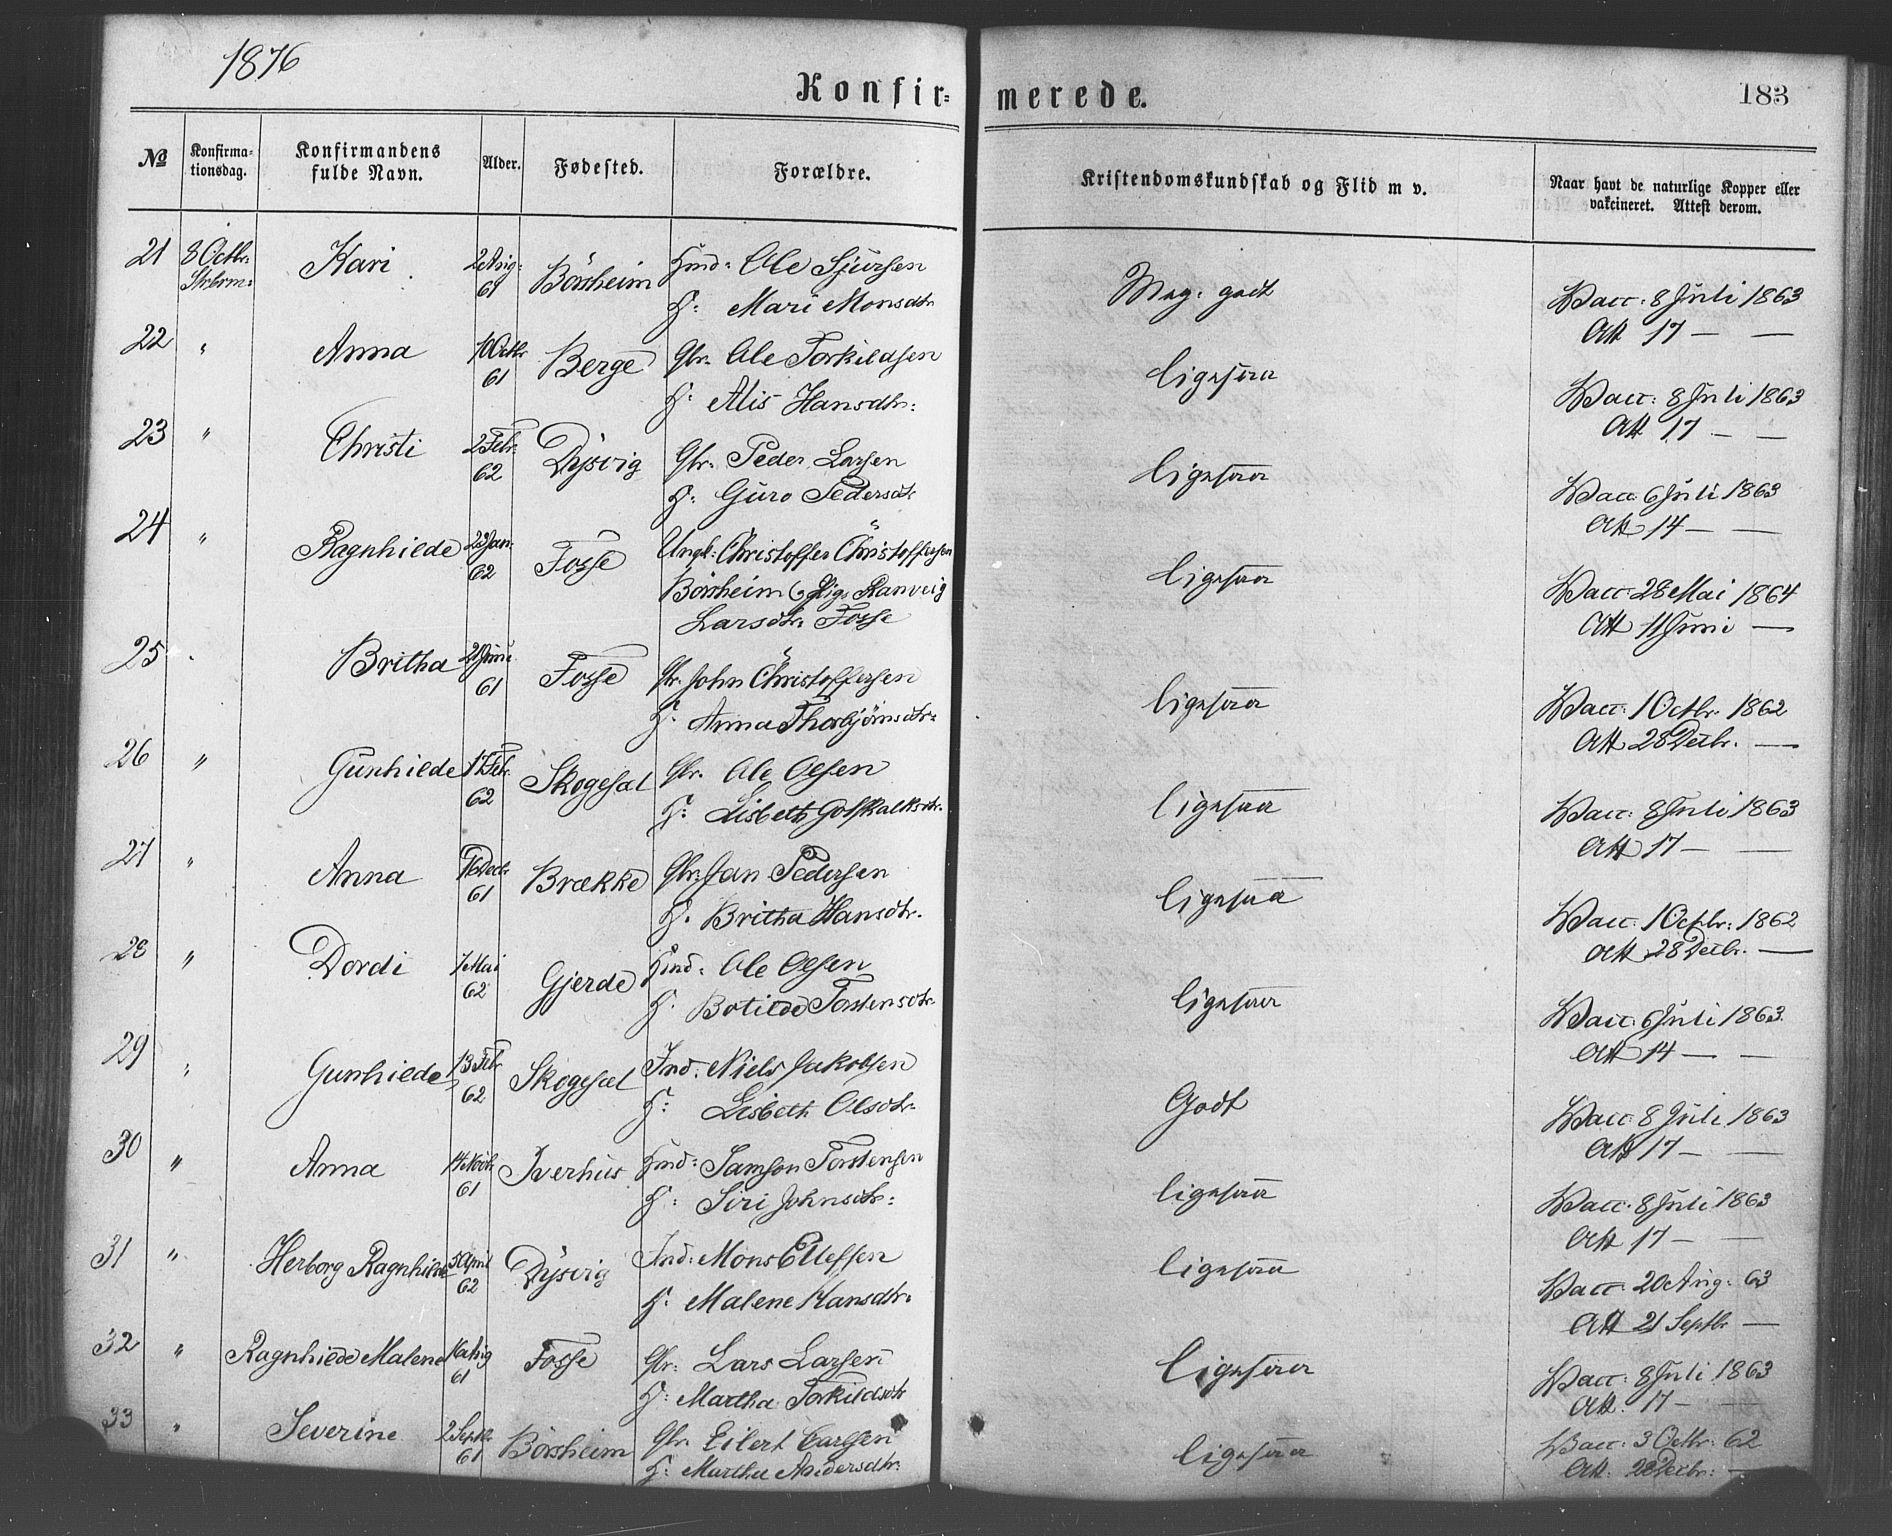 1876
Konfir=merede.
183
No
Konfirma-
tionsdag.
Konfirmandens
fulde Navn.
Alder.
Fødested.
Forældre.
Kristendomskundskab og Flid m v.
Naar havt de naturlige Kopper eller
vakcineret. Attest derom.
21 8 Octbr. Kari 2 Aug: Börsheim Hmd: Ole Sjursen Meg. godt Vacc: 8 Juli 1863
61 H: Mari Monsdtr Att 17 — —
22 " Anna 10 Octbr Berge Gbr. Ole Torkildsen ligesaa Vacc: 8 Juli 1863
61 H: Alis Hansdtr: Att 17 — —
23 " Christi 2 Febr. Dysvig Gbr. Peder Larsen ligesaa Vacc. 6 Juli 1863
62 H: Guro Pedersdtr Att 14 — —
24 " Ragnhilde 23 Jan. Fosse Ungk: Christoffer Christoffersen ligesaa Vacc. 28 Mai 1864
62 Börsheim og Pige Ranveig Att 11 Juni —
Larsdtr. Fosse
25 " Britha 21 Juni Fosse Gbr. John Christoffersen ligesaa Vacc. 1 Octbr. 1862
61 H. Anna Thorbjörnsdtr. Att 28 Decbr. —
26 " Gunhilde 17 Febr. Skogesæl Gbr. Ole Olsen ligesaa Vacc. 8 Juli 1863
62 H. Lisbeth Gotskalksdtr. Att 17 — —
27 " Anna 16 Decbr. Brække Gbr. Jan Pedersen ligesaa Vacc. 1 Octbr. 1862
61 H. Britha Hansdtr. Att 28 Decbr. —
28 " Dordi 7 Mai Gjerde Hmd. Ole Olsen ligesaa Vacc. 6 Juli 1863.
62 H. Botilde Torstensdtr. Att 14 — —
29 " Gunhilde 13 Febr Skogesæl Ind. Niels Jakobsen Godt Vacc. 8 Juli 1863
62 H: Lisbeth Olsdtr. Att 17 — —
30 " Anna 14 Novbr Iverhus Hmd: Samson Torstensen ligesaa Vacc. 8 Juli 1863
61 H: Siri Johnsdtr: Att 17 — —
31 " Herborg Ragnhilde 5 April Dysvig Ind: Mons Ellefsen ligesaa Vacc. 20 Aug. 63
62 H. Malene Hansdtr. Att 21 Septbr —
32 " Ragnhilde Malene 16 Aug Fosse Gbr. Lars Larsen ligesaa Vacc. 8 Juli 1863
61 H: Martha Torkildsdtr Att. 17 — —
33 " Severine 2 Septbr. Börsheim Gbr. Eilert Carlsen ligesaa Vacc. 3 Octbr. 62
61 H: Martha Andersdtr. Att. 28 Decbr: —